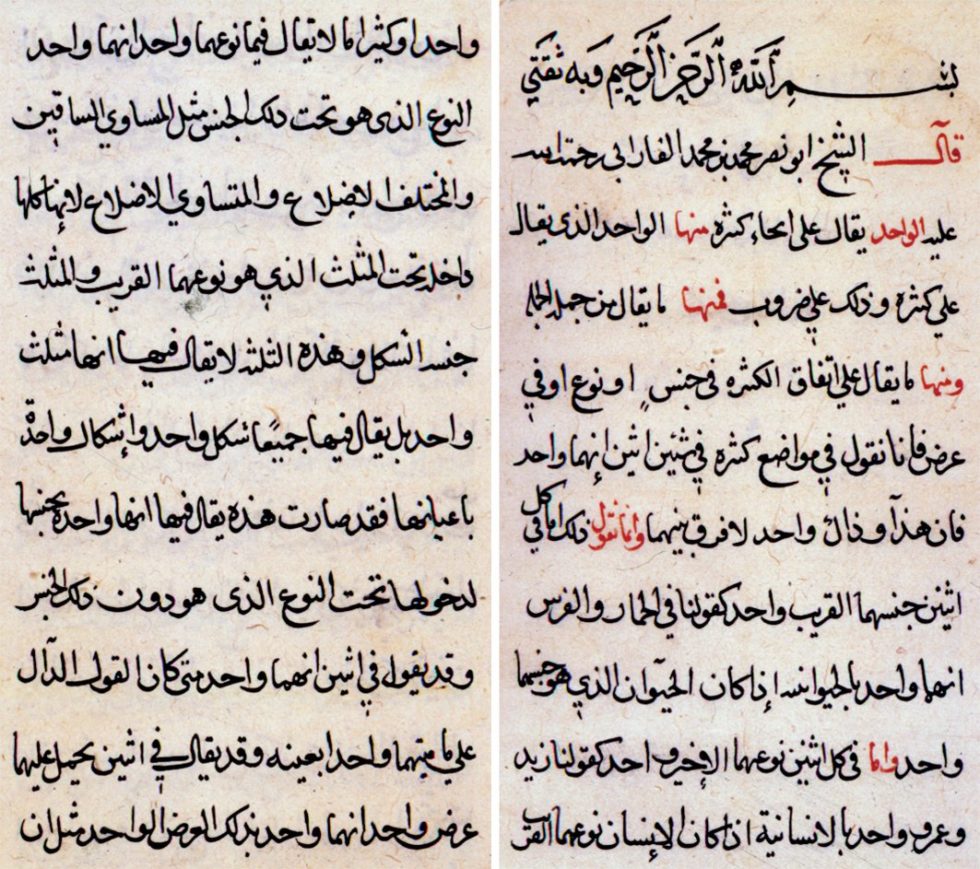 بسم الله الرحمن الرحيم وبه ثقتي
قال الشيخ ابو نصر محمد بن محمد الفارابي رحمة الله
عليه الواحد يقال على انحاء كثيره منها الواحد الذى يقال
على كثره وذلك على ضروب فمنها ما يقال من جملة
ومنها ما يقال على اتفاق الكثره فى جنس او نوع او في
عرض فانا نقول في مواضع كثره في شيئين اثنين انهما واحد
فان هذا وذاك واحد لا فرق بينهما وانما نقول ذلك اما في كل
اثنين جنسهما القريب واحد كقولنا في الحمار والفرس
انهما واحد بالحيوانيه اذا كان الحيوان الذي هو جنسهما
واحد واما فى كل اثنين نوعهما الاخير واحد كقولنا زيد
وعمرو واحد بالانسانية اذا كان الانسان نوعهما القريب
واحدا وكثيرا ما لا يقال فيما نوعهما واحد انهما واحد
النوع الذى هو تحت ذلك الجنس مثل المساوي الساقين
والمختلف الاضلاع والمتساوي الاضلاع لانها كلها
داخله تحت المثلث الذي هو نوعهما القريب والمثلث
جنسه الشكل وهذه الثلثه لا يقال فيها انها مثلث
واحد بل يقال فيها جميعا شكل واحد واشكال واحدة
باعيانها فقد صارت هذه يقال فيها انها واحدة بجنسها
لدخولها تحت النوع الذى هو دون ذلك الجنس
وقد يقول في اثنين انهما واحد متى كان القول الدال
على ماهيتهما واحدا بعينه وقد يقال في اثنين يحمل عليهما
عرض واحد انهما واحد بذلك العرض الواحد مثل ان